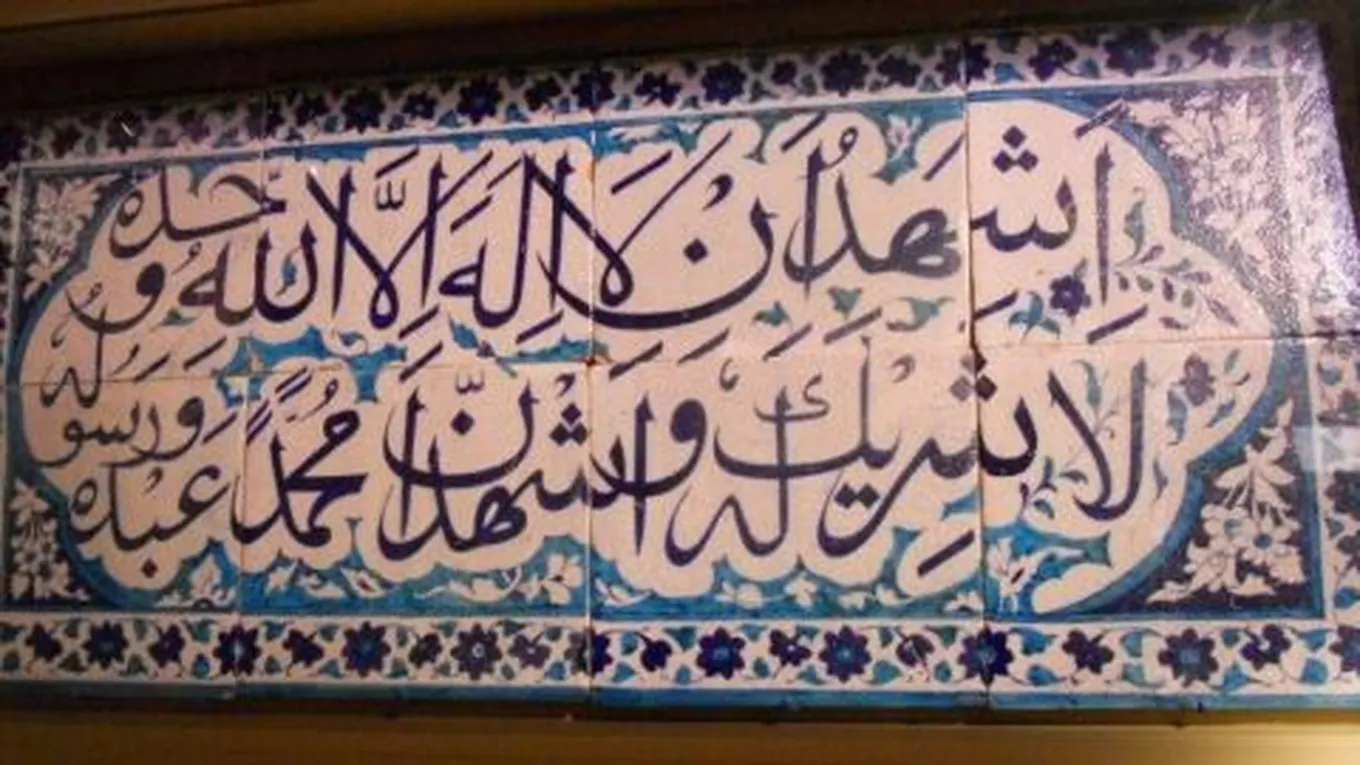 اَشْهَدُ اَنْ لَا اِلٰهَ اِلَّا اللهُ وَحْدَهُ
لَا شَرِيْكَ لَهُ وَ اَشْهَدُ اَنَّ مُحَمَّدًا عَبْدُهُ وَرَسُولُهُ